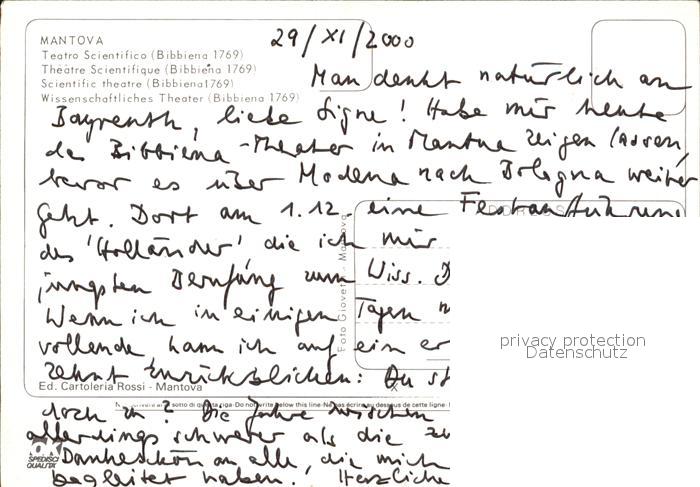 29/XI/2000
MANTOVA
Teatro Scientifico (Bibbiena 1769)
Théâtre Scientifique (Bibbiena 1769)
Scientific theatre (Bibbiena 1769)
Wissenschaftliches Theater (Bibbiena 1769)
Man denkt natürlich an
Bayreuth, liebe Signe! Habe mir heute
das Bibbiena-Theater in Mantua zeigen lassen,
bevor es über Modena nach Bologna weiter
geht. Dort am 1.12. eine Festaufführung
des 'Holländer' die ich mir
jüngsten Berufung zum Wiss.
Wenn ich in einigen Tagen
vollende kann ich auf ein
zehnt zurückblicken: Du
doch zu? Die Jahre zwischen
allerdings schwerer als die
Dankeschön an alle, die mich
begleitet haben. Herzliche
Foto Giovetti - Mantova
privacy protection
Datenschutz
Ed. Cartoleria Rossi - Mantova
sotto di questa riga - Do not write below this line - Ne pas écrire au dessous de cette ligne
SPEDISCI
QUALITÀ